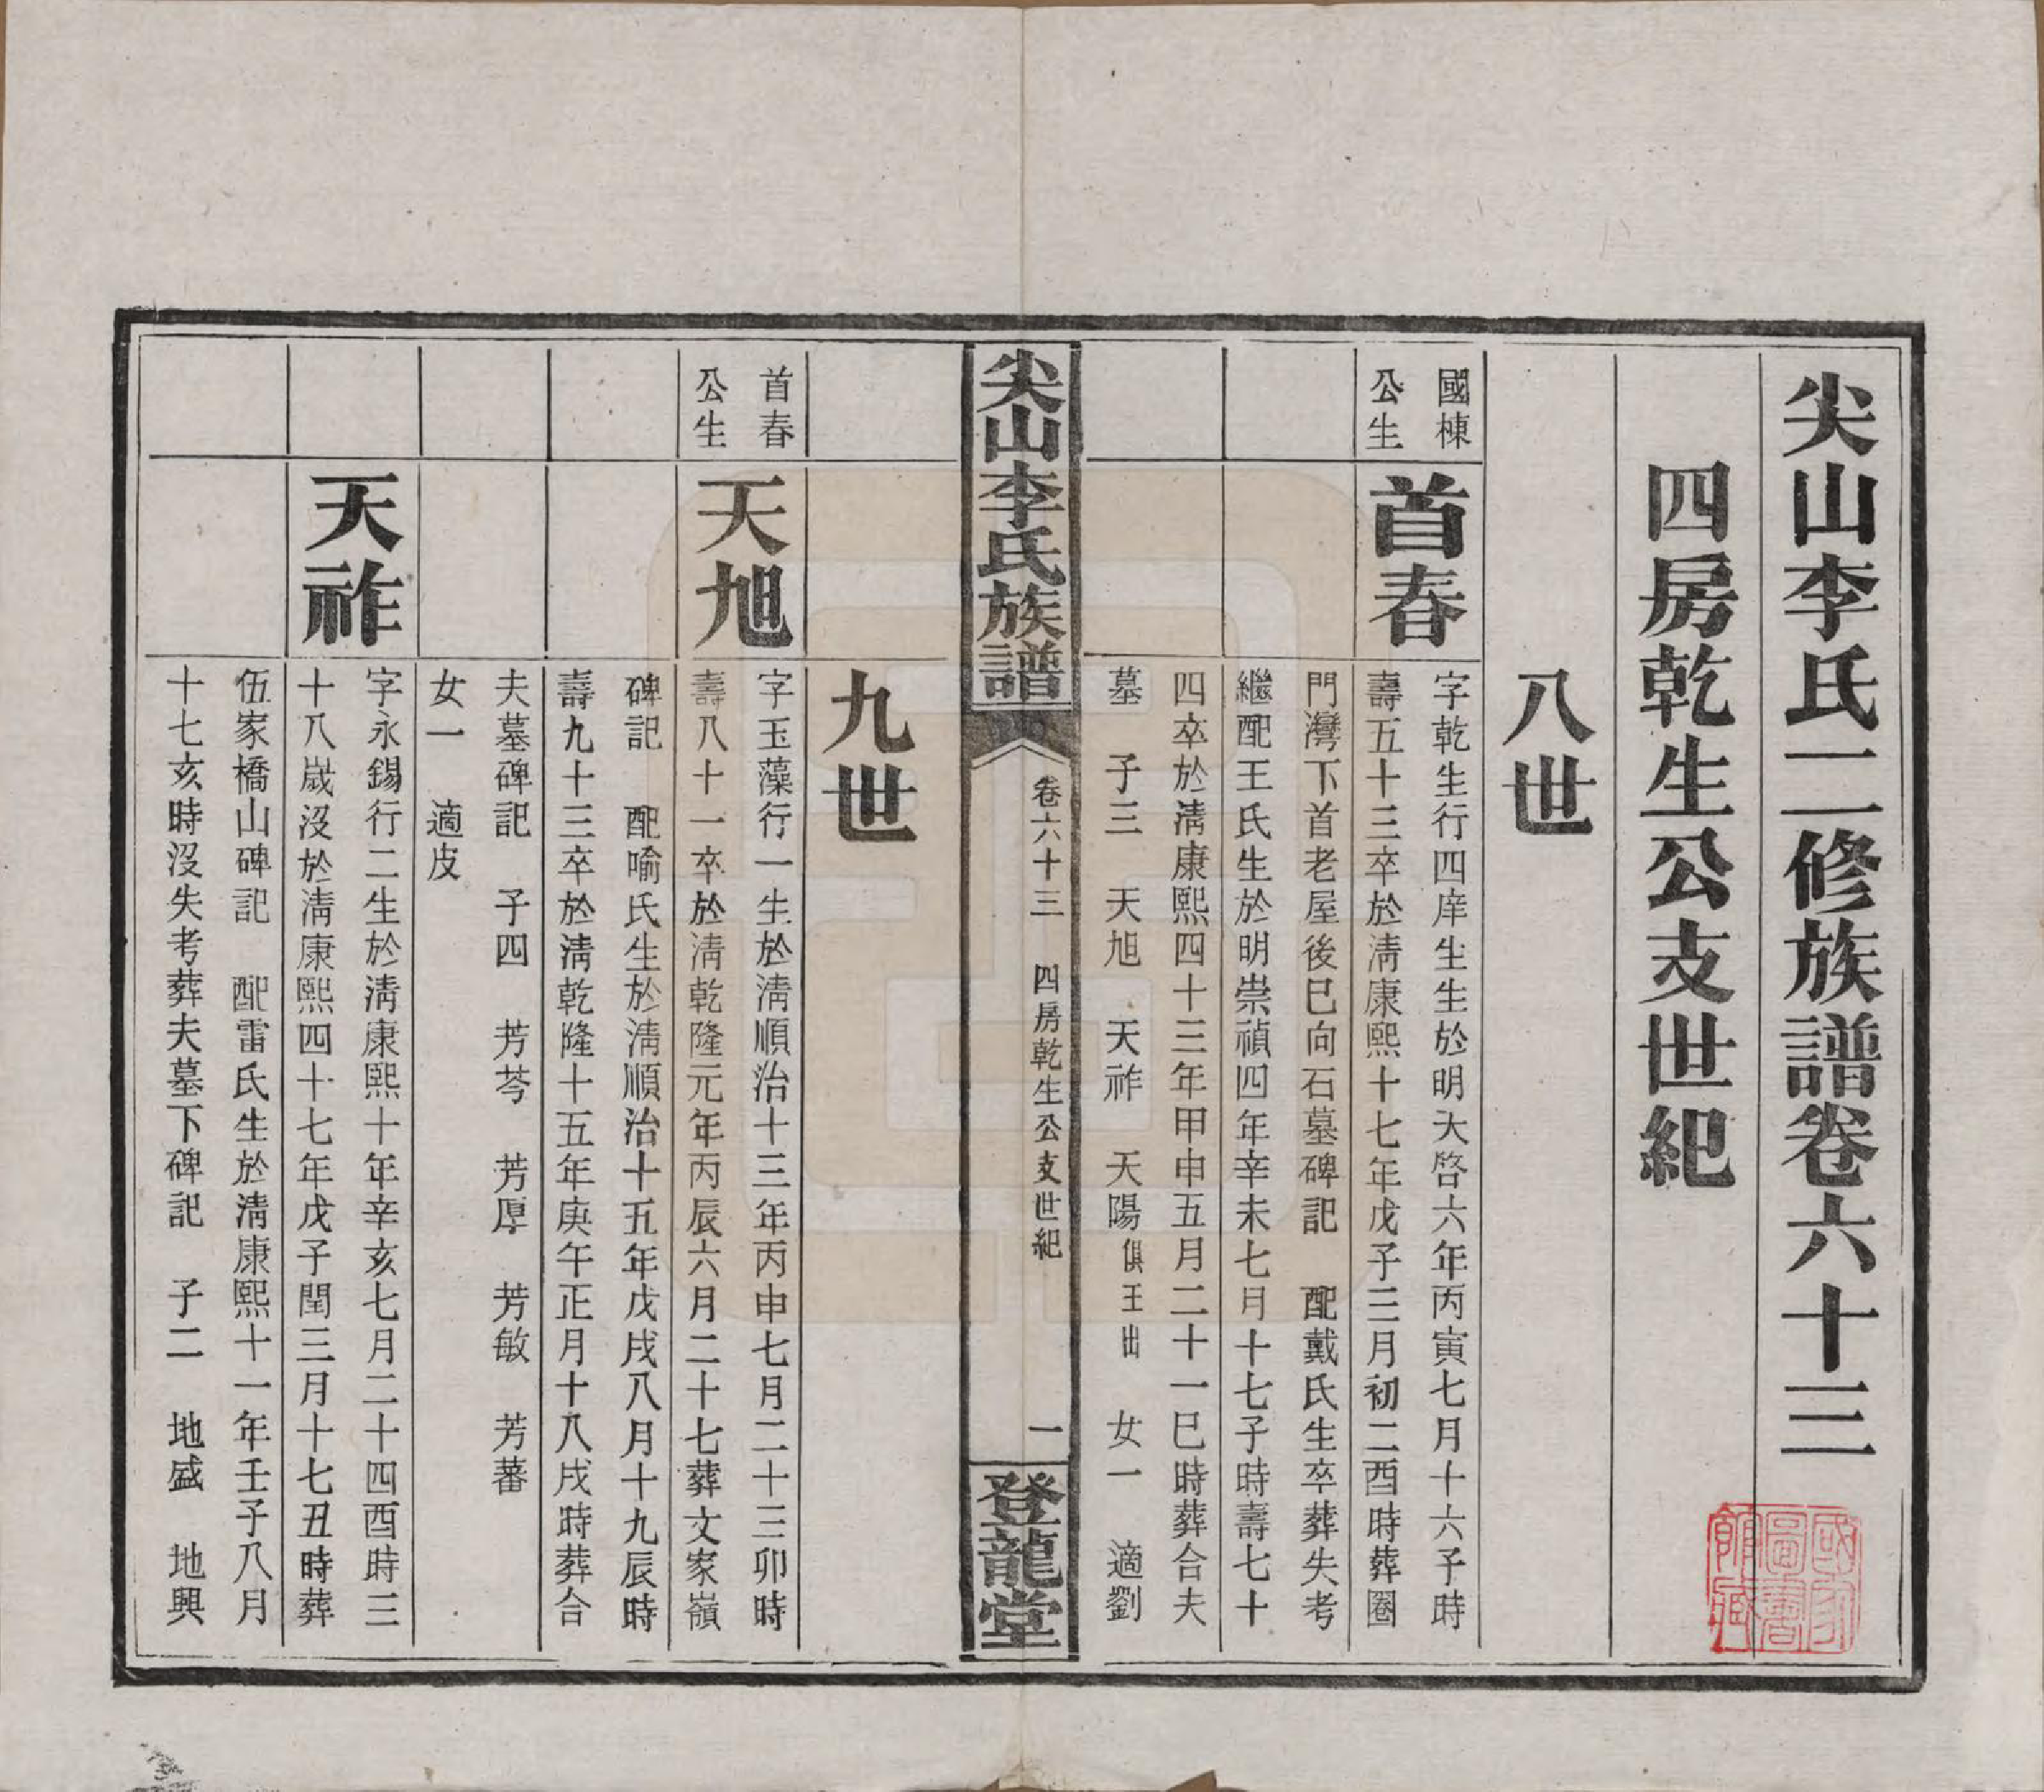 尖山李氏二修族譜卷六十三
四房乾生公支世紀
八世
國棟
公生
首春
字乾生行四庠生生於明天啓六年丙寅七月十六子時
壽五十三卒於淸康熙十七年戊午三月初二酉時葬圈
門灣下首老屋後巳向石墓碑記　配戴氏生卒葬失考
繼配王氏生於明崇禎四年辛未七月十七子時壽七十
四卒於淸康熙四十三年甲申五月二十一巳時葬合夫
墓　子三　天旭　天祚　天陽俱王出　女一　適劉
尖山李氏族譜
卷六十三　四房乾生公支世紀
一
登龍堂
九世
首春
公生
天旭
字玉藻行一生於淸順治十三年丙申七月二十三卯時
壽八十一卒於淸乾隆元年丙辰六月二十七葬文家嶺
碑記　配喻氏生於淸順治十五年戊戌八月十九辰時
壽九十三卒於淸乾隆十五年庚午正月十八戌時葬合
夫墓碑記　子四　芳芩　芳厚　芳敏　芳蕃
女一　適皮
天祚
字永錫行二生於淸康熙十年辛亥七月二十四酉時三
十八歲沒於淸康熙四十七年戊子閏三月十七丑時葬
伍家橋山碑記　配雷氏生於淸康熙十一年壬子八月
十七亥時沒失考葬夫墓下碑記　子二　地盛　地興
國家
圖書
館藏